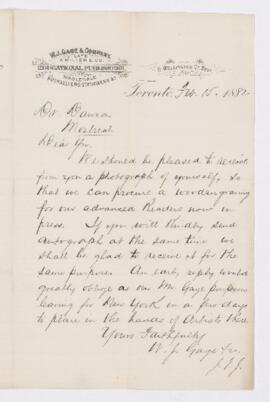 W.J. GAGE & COMPANY,
LATE
EDUCATIONAL PUBLISHERS
WHOLESALE
BOOKSELLERS, STATIONERS &c
Toronto, Feb. 15, 1882
Dr Dawson
Montreal
Dear Sir,
We should be pleased to receive
from you a photograph of yourself, so
that we can procure a woodengraving
for our advanced Readers now in
press. If you will kindly send
autograph at the same time we
shall be glad to receive it for the
same purpose. An early reply would
greatly oblige as our Mr. Gage purposes
leaving for New York in a few days
to place in the hands of Artists there.
Yours faithfully
W. J. Gage & Co.